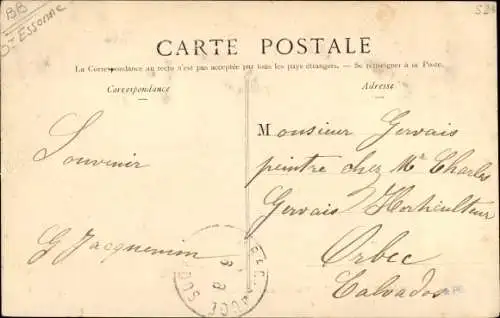 BB
Essonne
CARTE POSTALE
La Correspondance au recto n'est pas acceptée par tous les pays étrangers. — Se renseigner à la Poste.
Correspondance
Adresse
Souvenir
G Jacquemin
Monsieur Gervais
peintre chez Mr Charles
Gervais Horticulteur
Orbec
Calvados